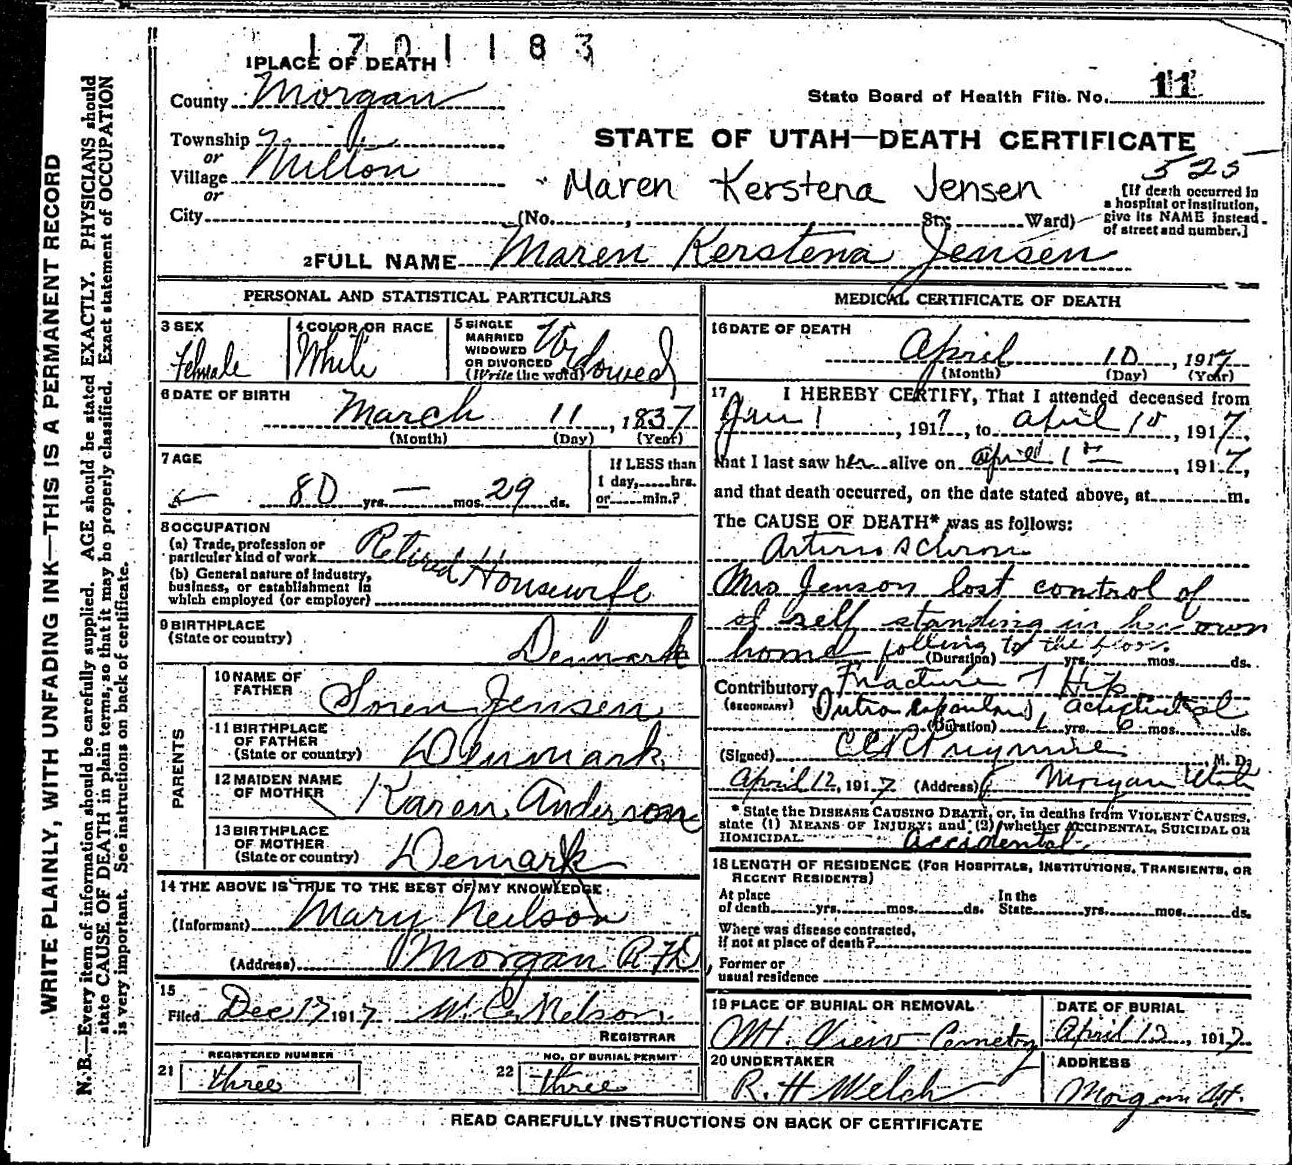 1701183
1 PLACE OF DEATH
County Morgan
State Board of Health File No. 11
Township
or
Village Milton
or
City
STATE OF UTAH—DEATH CERTIFICATE
525
Maren Kerstena Jensen
(No. , St; Ward)
[If death occurred in
a hospital or institution,
give its NAME instead
of street and number.]
2 FULL NAME Maren Kerstena Jensen
PERSONAL AND STATISTICAL PARTICULARS
3 SEX
Female
4 COLOR OR RACE
White
5 SINGLE
MARRIED
WIDOWED
OR DIVORCED
(Write the word)
Widowed
6 DATE OF BIRTH
March 11, 1837
(Month) (Day) (Year)
7 AGE
80 yrs. — mos. 29 ds.
If LESS than
1 day, hrs.
or min.?
8 OCCUPATION
(a) Trade, profession or
particular kind of work
Retired Housewife
(b) General nature of industry,
business, or establishment in
which employed (or employer)
9 BIRTHPLACE
(State or country)
Denmark
PARENTS
10 NAME OF
FATHER
Soren Jensen
11 BIRTHPLACE
OF FATHER
(State or country)
Denmark
12 MAIDEN NAME
OF MOTHER
Karen Anderson
13 BIRTHPLACE
OF MOTHER
(State or country)
Demark
14 THE ABOVE IS TRUE TO THE BEST OF MY KNOWLEDGE
(Informant) Mary Neilson
(Address) Morgan R.F.D
15
Filed Dec 17 1917 W. C. Nelson
REGISTRAR
21 REGISTERED NUMBER
three
22 NO. OF BURIAL PERMIT
three
MEDICAL CERTIFICATE OF DEATH
16 DATE OF DEATH
April 10, 1917
(Month) (Day) (Year)
17 I HEREBY CERTIFY, That I attended deceased from
Jan 1, 1917, to April 10, 1917,
that I last saw her alive on April 1, 1917,
and that death occurred, on the date stated above, at m.
The CAUSE OF DEATH* was as follows:
Mrs Jenson lost control of
of self standing in her own
home falling to the floor
(Duration) yrs. mos. ds.
Contributory Fracture of Hip
(SECONDARY) Intra capsular, accidental
(Duration) yrs. 6 mos. ds.
(Signed) M. D.
April 12, 1917 (Address) Morgan Utah
* State the DISEASE CAUSING DEATH, or, in deaths from VIOLENT CAUSES,
state (1) MEANS OF INJURY; and (2) whether ACCIDENTAL, SUICIDAL OR
HOMICIDAL. accidental
18 LENGTH OF RESIDENCE (FOR HOSPITALS, INSTITUTIONS, TRANSIENTS, OR
RECENT RESIDENTS)
At place
of death yrs. mos. ds.
In the
State yrs. mos. ds.
Where was disease contracted,
if not at place of death?
Former or
usual residence
19 PLACE OF BURIAL OR REMOVAL
Mt. View Cemetry
DATE OF BURIAL
April 12, 1917
20 UNDERTAKER
R. H Welch
ADDRESS
Morgan Ut.
READ CAREFULLY INSTRUCTIONS ON BACK OF CERTIFICATE
WRITE PLAINLY, WITH UNFADING INK—THIS IS A PERMANENT RECORD
N. B.—Every item of information should be carefully supplied. AGE should be stated EXACTLY. PHYSICIANS should
state CAUSE OF DEATH in plain terms, so that it may be properly classified. Exact statement of OCCUPATION
is very important. See instructions on back of certificate.